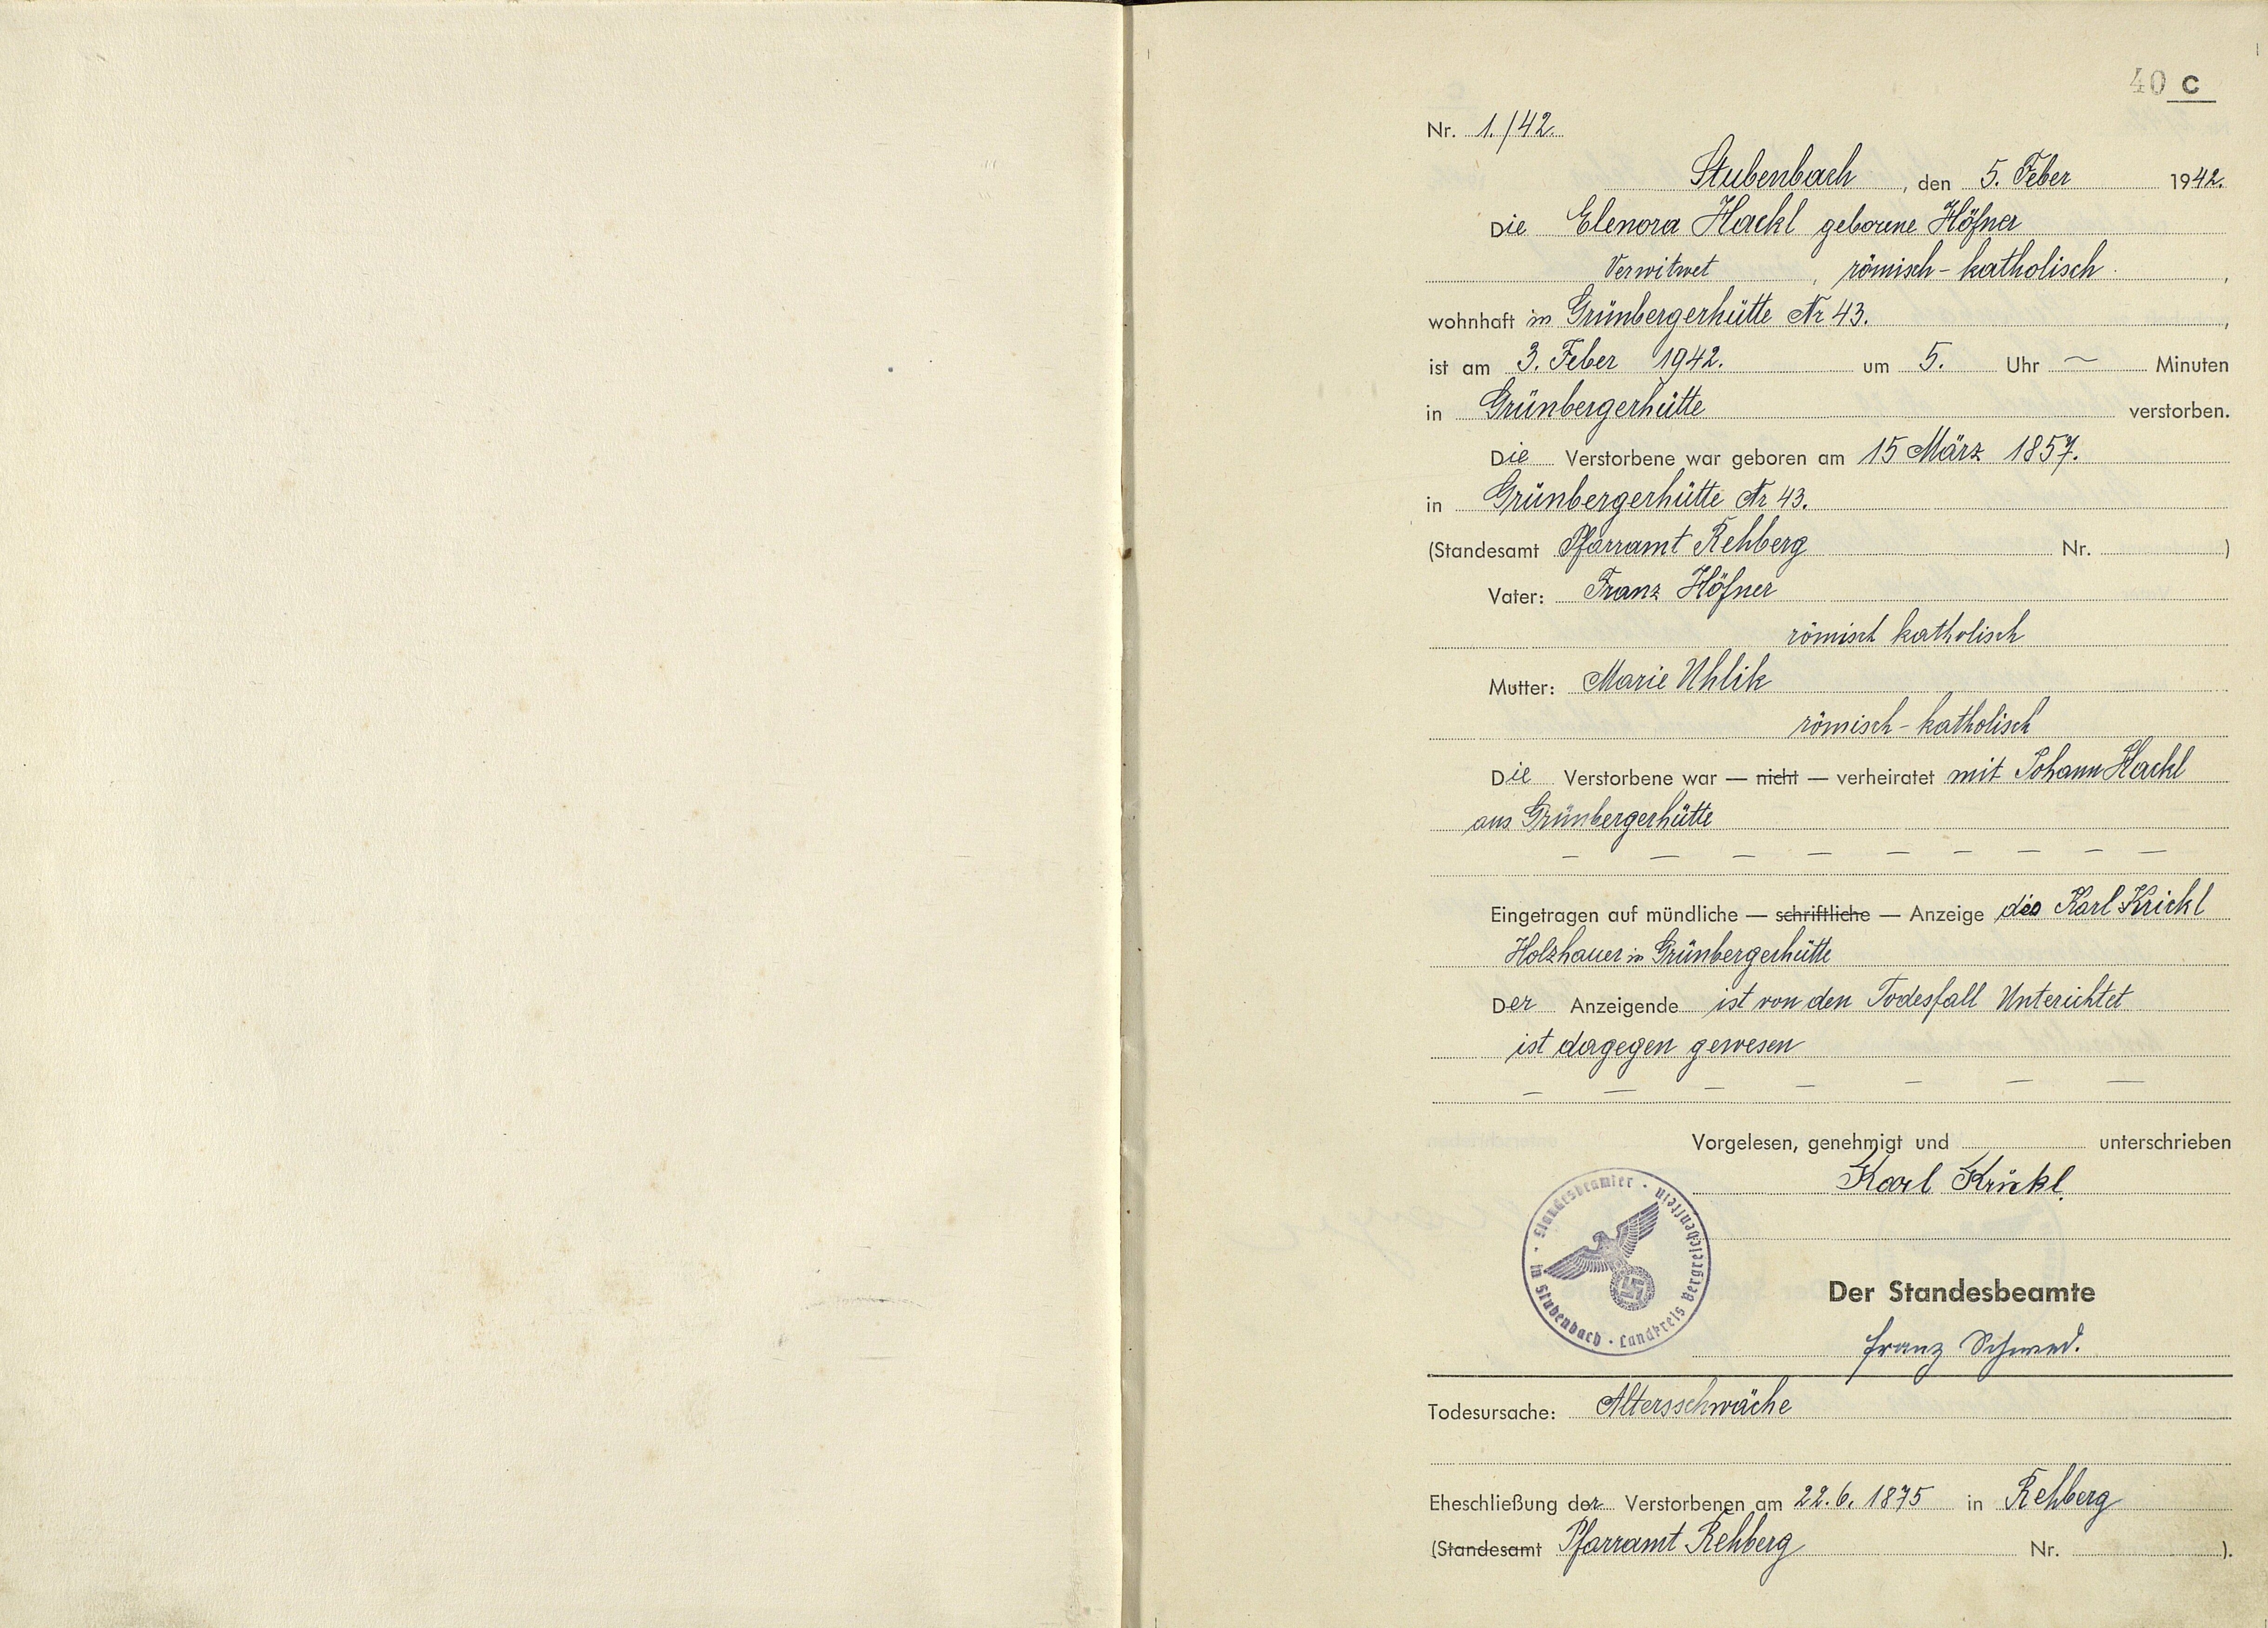 40 C
Nr. 1./42.
Stubenbach, den 5. Feber 1942.
Die Elenora Hackl geborene Höfner
Verwitwet, römisch-katholisch,
wohnhaft in Grünbergerhütte Nr 43.,
ist am 3. Feber 1942. um 5. Uhr ~ Minuten
in Grünbergerhütte verstorben.
Die Verstorbene war geboren am 15 März 1857.
in Grünbergerhütte Nr 43.
(Standesamt Pfarramt Rehberg Nr. )
Vater: Franz Höfner
römisch katholisch
Mutter: Marie Uhlik
römisch-katholisch
Die Verstorbene war — nicht — verheiratet mit Johann Hackl
aus Grünbergerhütte
— — — — — — — — —
Eingetragen auf mündliche — schriftliche — Anzeige des Karl Krickl
Holzhauer in Grünbergerhütte
Der Anzeigende ist von den Todesfall Unterichtet
ist dagegen gewesen
— — — — — — —
Vorgelesen, genehmigt und unterschrieben
Karl Krickl.
Standesbeamter · in Stubenbach · Landkreis Bergreichenstein ·
Der Standesbeamte
Franz
Todesursache: Altersschwäche
Eheschließung der Verstorbenen am 22.6.1875 in Rehberg
(Standesamt Pfarramt Rehberg Nr. ).